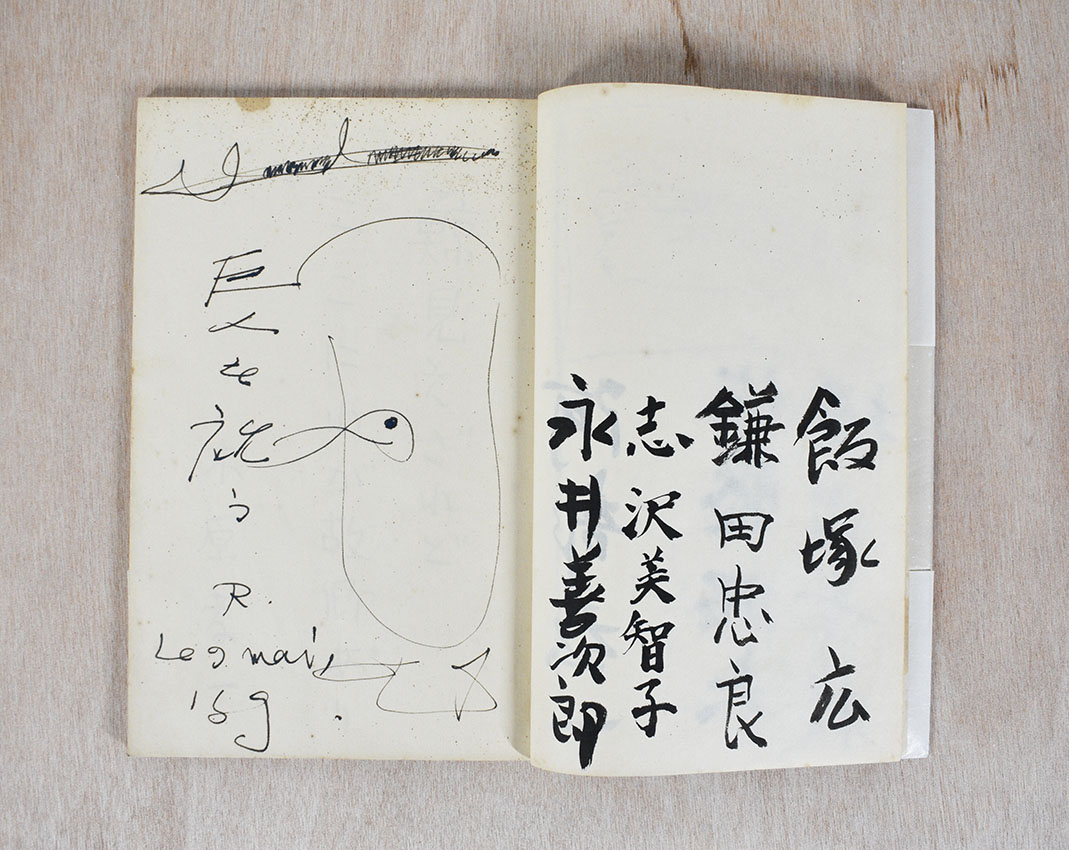 飯塚広
鎌田忠良
志沢美智子
永井善次郎
巨人を う
R.